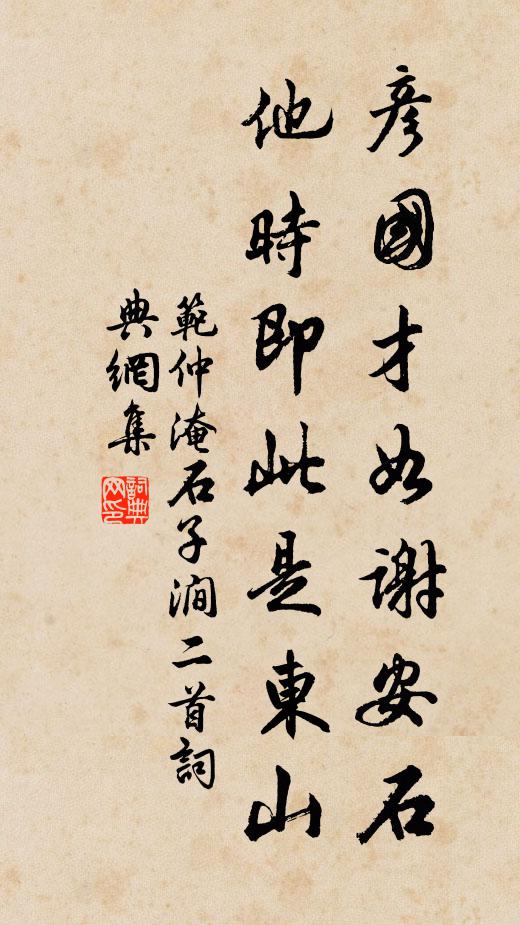 彥國才如謝安石
他時即此是東山
範仲淹石子澗二首詞
典網集
詞典網印